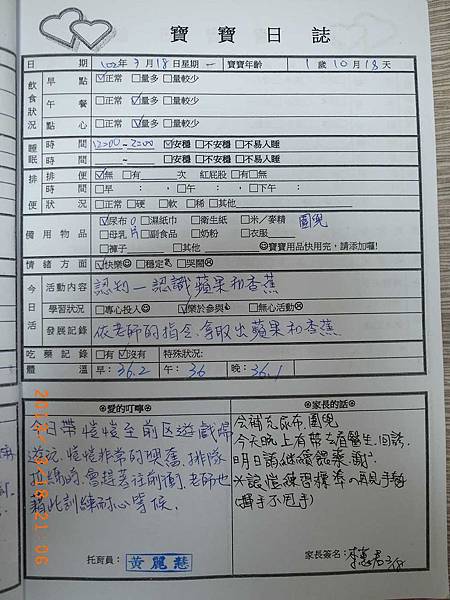 寶寶日誌
日期 102年3月18日星期一 寶寶年齡 1歲10月18天
飲食狀況
早點 ☑正常 □量多 □量較少
午餐 □正常 ☑量多 □量較少
點心 □正常 ☑量多 □量較少
睡眠
時間 12:00~2:00 ☑安穩 □不安穩 □不易入睡
時間 ~ □安穩 □不安穩 □不易入睡
排便
排便 ☑無 □有 次 紅屁股 □有□無
時間 □早 : ,□午 : ,□下午 :
狀況 □正常 □硬 □軟 □稀 □其他
備用物品
☑尿布 □濕紙巾 □衛生紙 □米/麥精 圍兜
□母乳 □副食品 □奶粉 □衣服
□褲子 □其他 ☺寶寶用品快用完,請添加喔!
情緒方面 ☑快樂☺ □穩定 □哭鬧☹
今日活
活動內容 認知—認識蘋果和香蕉
學習狀況 □專心投入☺ ☑樂於參與 □無心活動☹
發展記錄 依老師的指令,拿取出蘋果和香蕉
吃藥記錄 □有 ☑沒有 特殊狀況:
體溫 早:36.2 午:36 晚:36.1
愛的叮嚀
今日帶愷愷至前区遊戲場
遊玩,愷愷非常的興奮,排隊
老師也
藉此訓練耐心等候.
托育員: 黃麗慧
家長的話
會補充尿布,圍兜
今天晚上有帶去看醫生,回診,
明日請繼續餵藥,謝!
家長簽名: 3/18
2013/3/18 21:06